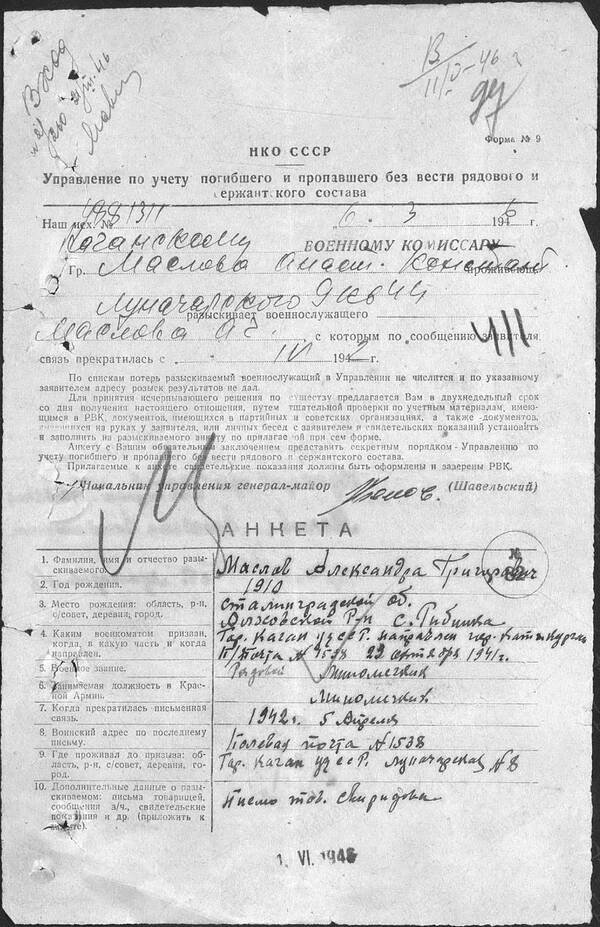 Вход
В
11/V-46 г
Форма № 9
НКО СССР
Управление по учету погибшего и пропавшего без вести рядового и
сержантского состава
Наш исх. № 6. 3 1946 г.
Каганскому ВОЕННОМУ КОМИССАРУ
Гр. Маслова Анаст. Констант проживающ
Луначарского
разыскивает военнослужащего
Маслова с которым по сообщению заявителя
связь прекратилась с IV 1942 г.
По спискам потерь разыскиваемый военнослужащий в Управлении не числится и по указанному
заявителем адресу розыск результатов не дал.
Для принятия исчерпывающего решения по существу предлагается Вам в двухнедельный срок
со дня получения настоящего отношения, путем тщательной проверки по учетным материалам, имею-
щимся в РВК, документов, имеющихся в партийных и советских организациях, а также документов,
имеющихся на руках у заявителя, или личных бесед с заявителем и свидетельских показаний установить
и заполнить на разыскиваемого анкету по прилагаемой при сем форме.
Анкету с Вашим обязательным заключением представить секретным порядком Управлению по
учету погибшего и пропавшего без вести рядового и сержантского состава.
Прилагаемые к анкете свидетельские показания должны быть оформлены и заверены РВК.
Начальник управления генерал-майор (Шавельский)
АНКЕТА
1. Фамилия, имя и отчество разы-
скиваемого. Маслов Александра Григорьевич
2. Год рождения. 1910
3. Место рождения: область, р-н,
с/совет, деревня, город. Сталинградской об.
Р-н с.
4. Каким военкоматом призван,
когда, в какую часть и когда
направлен. Гор. Каган УзССР. направлен гор.
П/почта № 1538 22 октября 1941 г.
5. Военное звание. Рядовой Минометчик
6. Занимаемая должность в Крас-
ной Армии. Минометчик
7. Когда прекратилась письменная
связь. 1942 г. 5 Апреля
8. Воинский адрес по последнему
письму. Полевая почта № 1538
9. Где проживал до призыва: об-
ласть, р-н, с/совет, деревня, го-
род. Гор. Каган УзССР. Луначарская № 8
10. Дополнительные данные о разы-
скиваемом: письма товарищей,
сообщения в/ч., свидетельские
показания и др. (приложить к
анкете). Писмо тов. Свиридова
1. VI. 1946